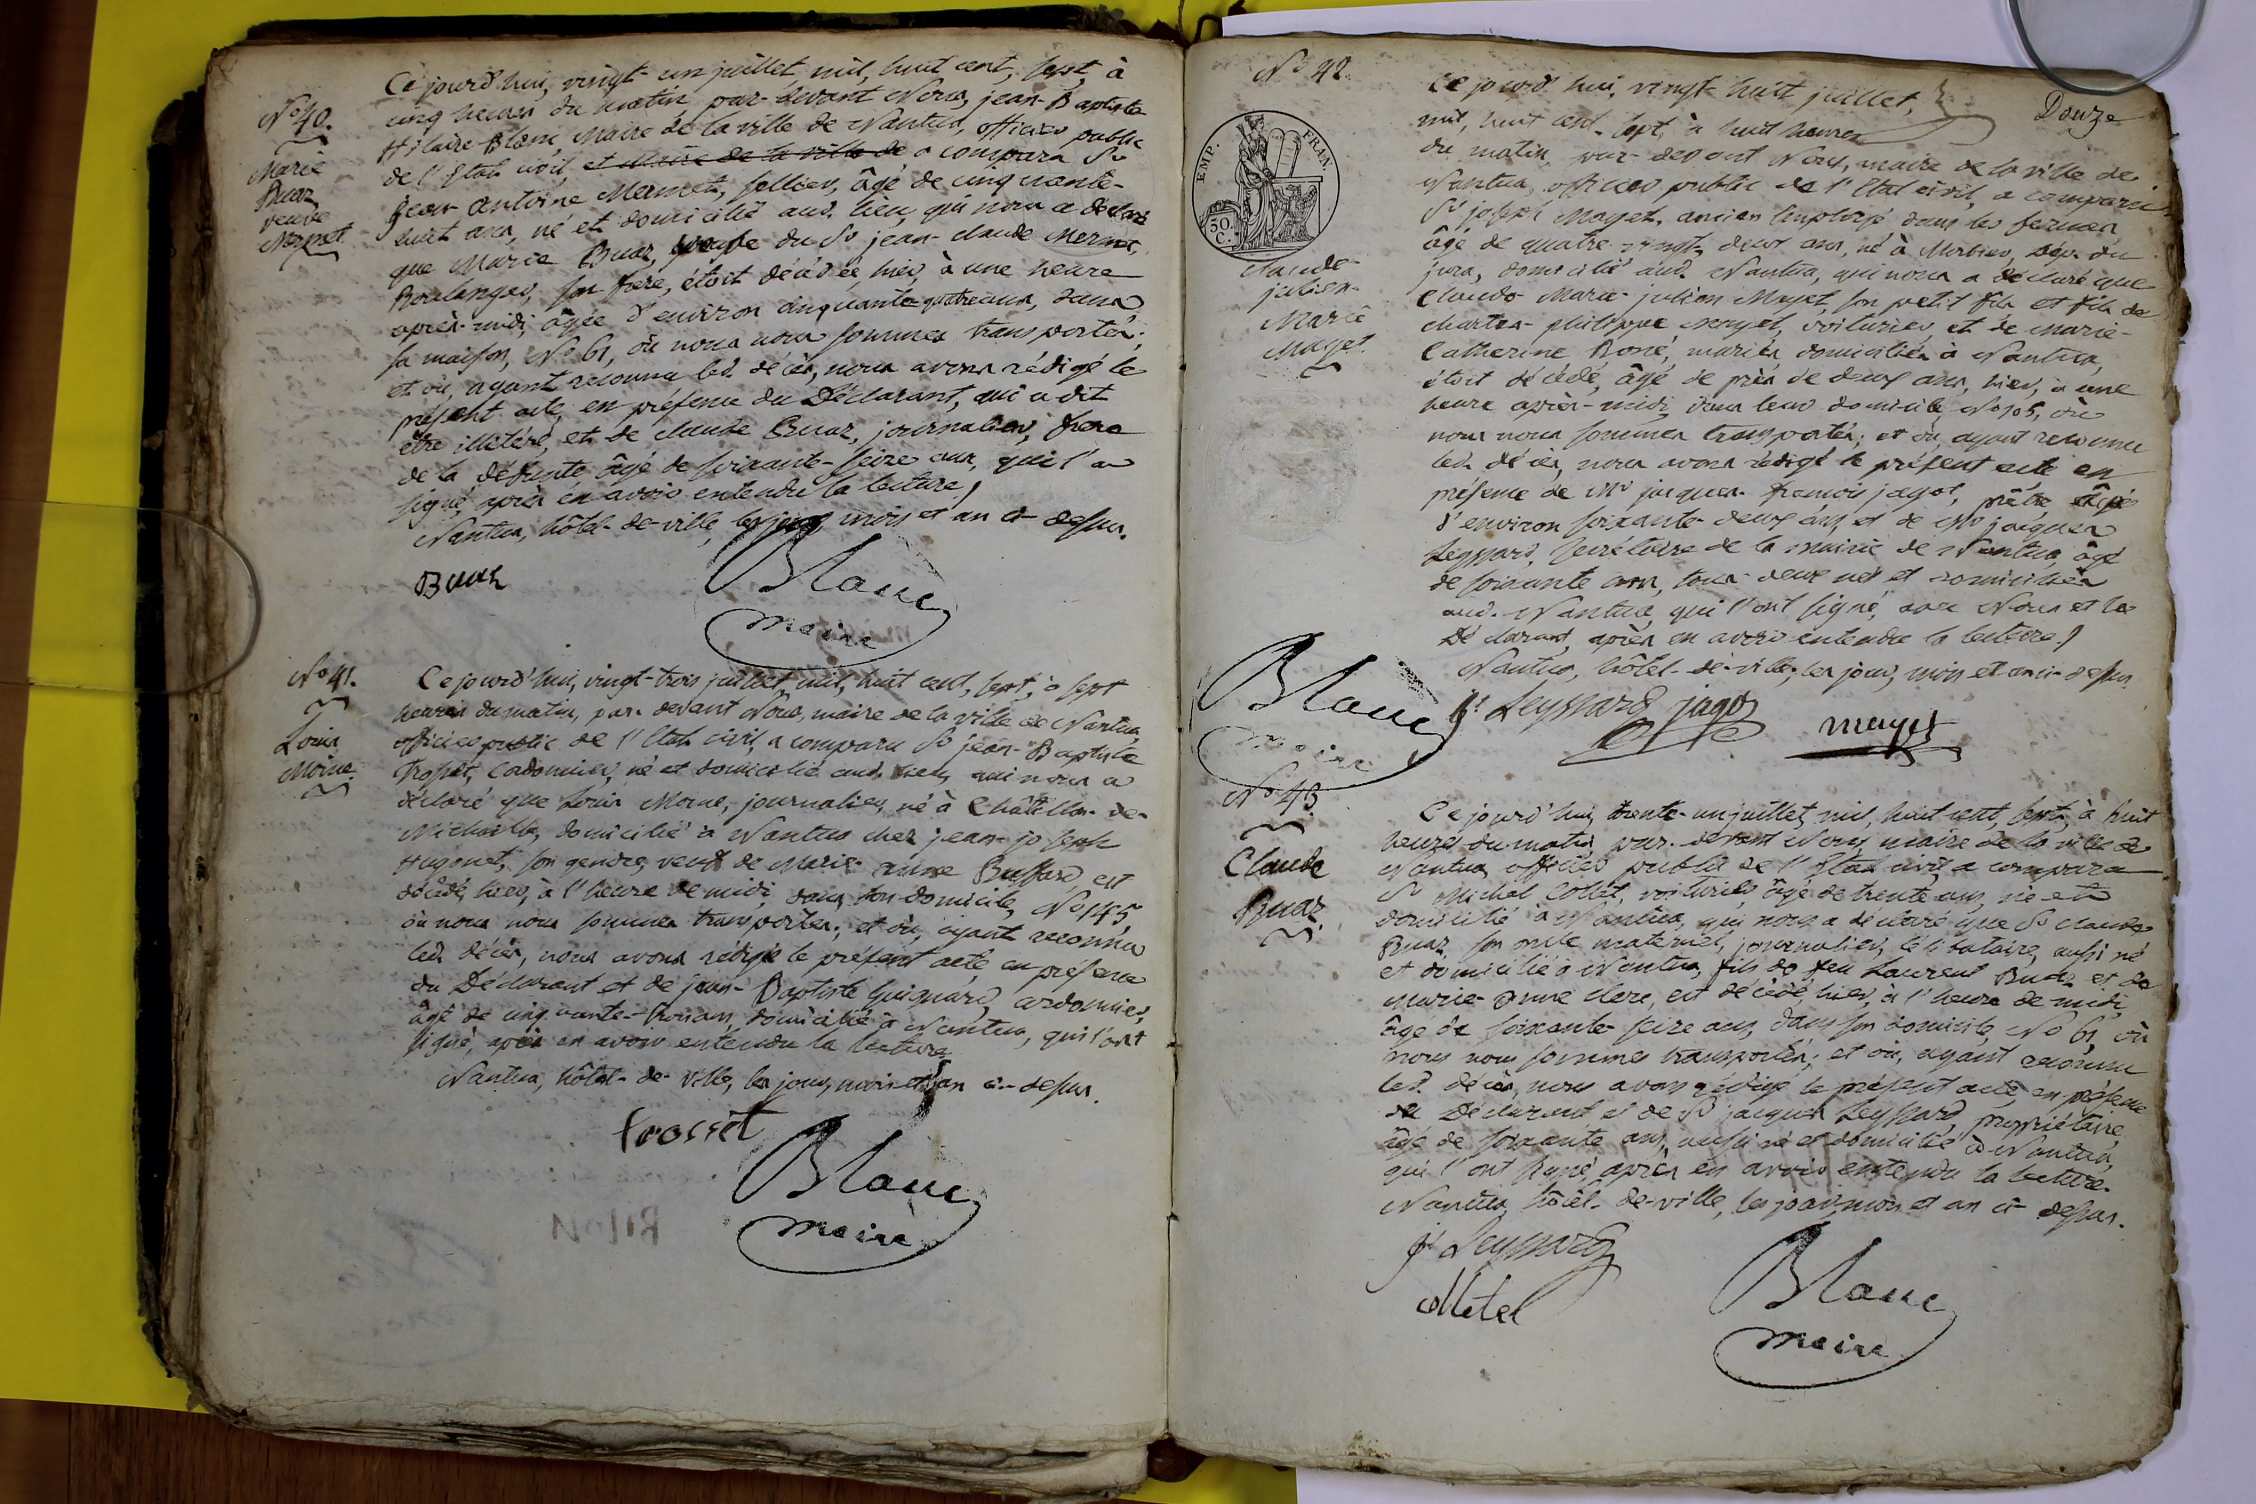 N.o 40.
Marie
Buaz
veuve
Mermet.
Ce jourd'hui, vingt-un juillet mil, huit cent, sept, à
cinq heures du matin par-devant Nous, jean-Baptiste
Hilaire Blanc, Maire de la ville de Nantua, officier public
de l'Etat civil, et Maire de la ville de a comparu Sr
Jean Antoine Mermet, sellier, âgé de cinquante-
huit ans, né et domicilié aud. lieu, qui nous a déclaré
que Marie Buaz, veuve du Sr jean-claude Mermet,
Boulanger, son frere, étoit décédée, hier, à une heure
après-midi, âgée d'environ cinquante-quatre ans, dans
sa maison, N.o 61, où nous nous sommes transportés;
et où, ayant reconnu led. décès, nous avons rédigé le
présent acte, en présence du Déclarant, qui a dit
être illitéré, et de claude Buaz, journalier, frere
de la défunte âgé de soixante-seize ans, qui l'a
signé, après en avoir entendu la lecture.
Nantua, hôtel-de-ville, les jour, mois et an ci-dessus.
Buaz
Blanc
maire
N.o 41.
Louis
Moine.
Ce jourd'hui, vingt-trois juillet, mil, huit cent, sept, à sept
heures du matin, par-devant Nous, maire de la ville de Nantua,
officier public de l'Etat civil, a comparu Sr jean-Baptiste
Trosset, Cordonnier, né et domicilié aud. lieu, qui nous a
déclaré que Louis Moine, journalier, né à Châtillon-de-
Michaille, domicilié à Nantua chez jean-joseph
Hugonet, son gendre, veuf de Marie-anne Buffard, est
décédé, hier, à l'heure de midi, dans son domicile, N.o 145,
où nous nous sommes transportés; et où, ayant reconnu
led. décès, nous avons rédigé le présent acte, en présence
du Déclarant et de jean-Baptiste Guignard, cordonnier,
âgé de cinquante- ans, domicilié à Nantua, qui l'ont
signé, après en avoir entendu la lecture
Nantua, hôtel-de-ville, les jour, mois et an ci-dessus.
trosset
Blanc
maire
N.o 42.
Douze
EMP. FRAN.
50. C.
Claude-
julien-
Marie
Mayet.
Ce jourd'hui, vingt-huit juillet,
mil, huit cent, sept, à huit heures
du matin, par-devant Nous, maire de la ville de
Nantua, officier public de l'Etat civil, a comparu
Sr joseph Mayet, ancien Employé dans les fermes
âgé de quatre-vingt-deux ans, né à Morbier, dép. du
jura, domicilié aud. Nantua, qui nous a déclaré que
Claude-Marie-julien Mayet, son petit fils et fils de
charles-philippe Mayet, voiturier, et de Marie-
Catherine Roné, mariés, domiciliés à Nantua,
étoit décédé, âgé de près de deux ans, hier, à une
heure après-midi, dans leur domicile N.o 105, où
nous nous sommes transportés; et où, ayant reconnu
led. décès, nous avons rédigé le présent acte en
présence de Mr jacques-francois jagot, prêtre âgé
d'environ soixante-deux ans, et de Mr jacques
Leyssard, Secrétaire de la mairie de Nantua, âgé
de soixante ans, tous-deux nés et domiciliés
aud. Nantua, qui l'ont signé, avec Nous et le
Déclarant, après en avoir entendu la lecture.
Nantua, hôtel-de-ville, les jour, mois et an ci-dessus.
Blanc
maire
Js Leyssard jagot
mayet
N.o 43.
Claude
Buaz.
Ce jourd'hui, trente-un juillet, mil, huit cent, sept, à huit
heures du matin, par-devant Nous, maire de la ville de
Nantua, officier public de l'Etat civil, a comparu
Sr Michel Collet, voiturier, âgé de trente ans, né et
domicilié à Nantua, qui nous a déclaré que Sr claude
Buaz, son oncle maternel, journalier, célibataire, aussi né
et domicilié à Nantua, fils de feu Laurent Buaz et de
Marie-Anne Clerc, est décédé, hier, à l'heure de midi,
âgé de soixante-seize ans, dans son domicile, N.o 61, où
nous nous sommes transportés; et où, ayant reconnu
led. décès, nous avons rédigé le présent acte, en présence
du Déclarant et de Sr jacques Leyssard, propriétaire,
âgé de soixante ans, aussi né et domicilié à Nantua,
qui l'ont signé, après en avoir entendu la lecture.
Nantua, hôtel-de-ville, les jour, mois et an ci-dessus.
Js Leyssard
Blanc
maire